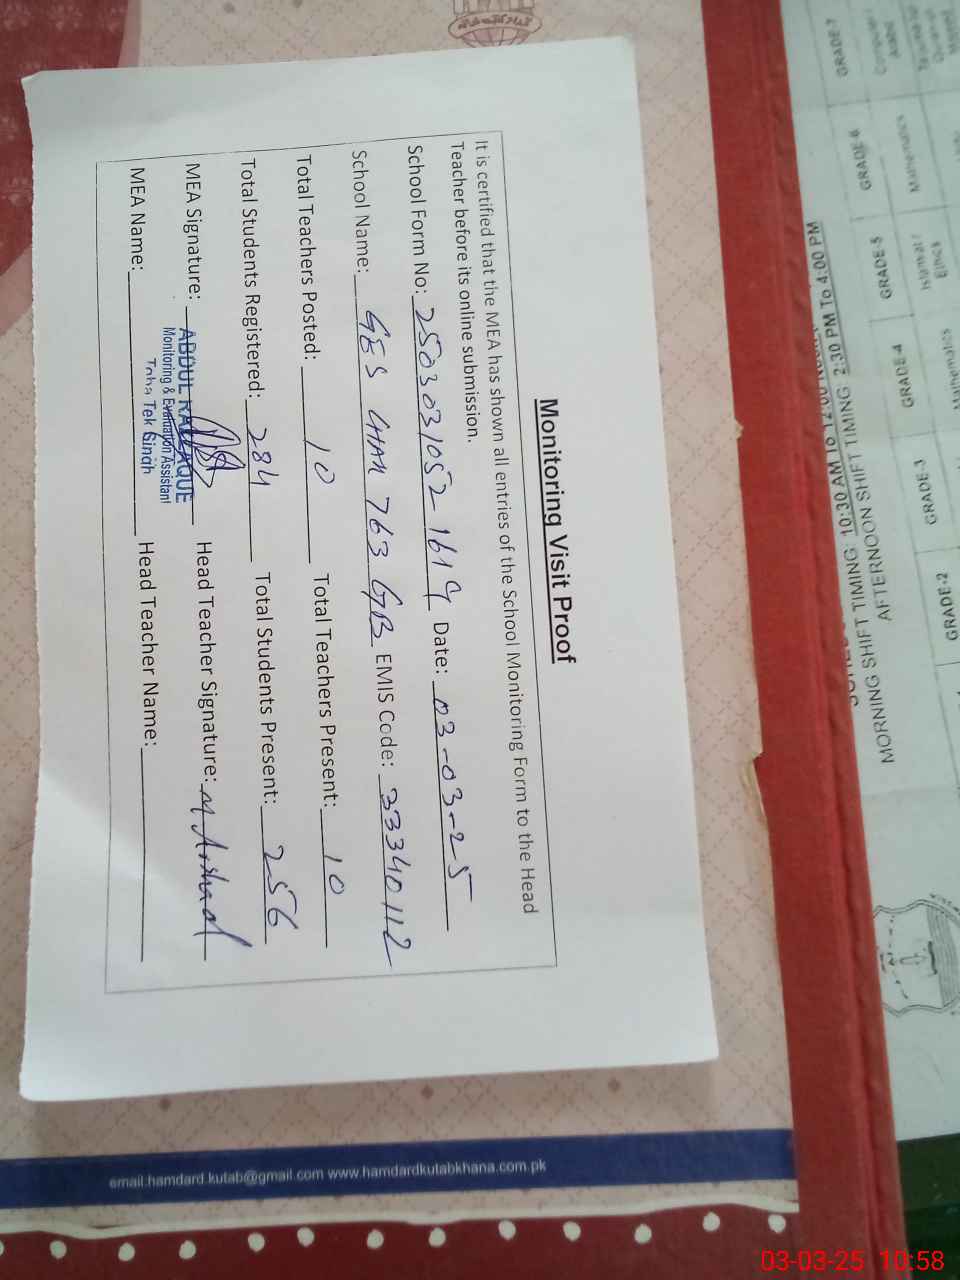 Monitoring Visit Proof
It is certified that the MEA has shown all entries of the School Monitoring Form to the Head
Teacher before its online submission.
School Form No: 2503031052 1619 Date: 03-03-25
School Name: GES CHAK 763 GB EMIS Code: 33340112
Total Teachers Posted: 10 Total Teachers Present: 10
Total Students Registered: 284 Total Students Present: 256
MEA Signature: ABDUL RAZZAQUE Head Teacher Signature: M Arshad
Monitoring & Evaluation Assistant
Toba Tek Singh
MEA Name: Head Teacher Name:
email.hamdard.kutab@gmail.com www.hamdardkutabkhana.com.pk
MORNING SHIFT TIMING 10:30 AM To 12:00
AFTERNOON SHIFT TIMING 2:30 PM To 4:00 PM
GRADE-7 GRADE-6 GRADE-5 GRADE-4 GRADE-3 GRADE-2
Mathematics Islamiat / Ethics Mathematics
03-03-25 10:58